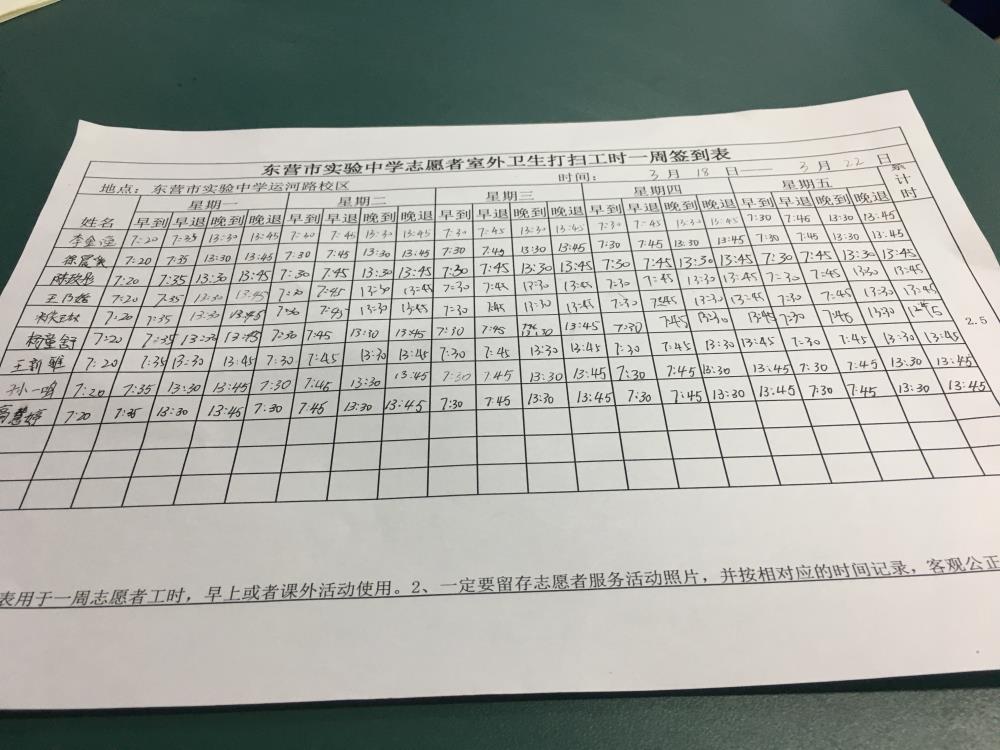 东营市实验中学志愿者室外卫生打扫工时一周签到表
地点： 东营市实验中学运河路校区 时间： 3 月 18 日—— 3 月 22 日
姓名 星期一 星期二 星期三 星期四 星期五 累计时
早到 早退 晚到 晚退 早到 早退 晚到 晚退 早到 早退 晚到 晚退 早到 早退 晚到 晚退 早到 早退 晚到 晚退
7:20 7:35 13:30 13:45 7:30 7:45 13:30 13:45 7:30 7:45 13:30 13:45 7:30 7:45 13:30 13:45 7:30 7:45 13:30 13:45
7:20 7:35 13:30 13:45 7:30 7:45 13:30 13:45 7:30 7:45 13:30 13:45 7:30 7:45 13:30 13:45 7:30 7:45 13:30 13:45
7:20 7:35 13:30 13:45 7:30 7:45 13:30 13:45 7:30 7:45 13:30 13:45 7:30 7:45 13:30 13:45 7:30 7:45 13:30 13:45
7:20 7:35 13:30 13:45 7:30 7:45 13:30 13:45 7:30 7:45 13:30 13:45 7:30 7:45 13:30 13:45 7:30 7:45 13:30 13:45
7:20 7:35 13:30 13:45 7:30 7:45 13:30 13:45 7:30 7:45 13:30 13:45 7:30 7:45 13:30 13:45 7:30 7:45 13:30
7:20 7:35 13:30 13:45 7:30 7:45 13:30 13:45 7:30 7:45 13:30 13:45 7:30 7:45 13:30 13:45 7:30 7:45 13:30 13:45 2.5
王新雅 7:20 7:35 13:30 13:45 7:30 7:45 13:30 13:45 7:30 7:45 13:30 13:45 7:30 7:45 13:30 13:45 7:30 7:45 13:30 13:45
孙一鸣 7:20 7:35 13:30 13:45 7:30 7:45 13:30 13:45 7:30 7:45 13:30 13:45 7:30 7:45 13:30 13:45 7:30 7:45 13:30 13:45
高慧婷 7:20 7:35 13:30 13:45 7:30 7:45 13:30 13:45 7:30 7:45 13:30 13:45 7:30 7:45 13:30 13:45 7:30 7:45 13:30 13:45
表用于一周志愿者工时，早上或者课外活动使用。2、 一定要留存志愿者服务活动照片，并按相对应的时间记录，客观公正